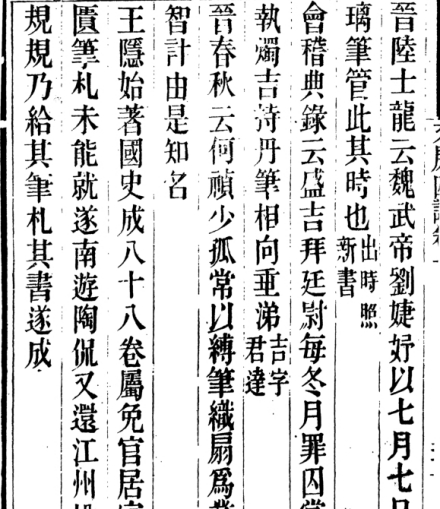 晉陸士龍云魏武帝劉婕妤以七月七日
璃筆管此其時也出時照新書
會稽典錄云盛吉拜廷尉每冬月罪囚當
執燭吉持丹筆相向垂涕吉字君達
晉春秋云何禎少孤常以縛筆織扇爲業
智計由是知名
王隱始著國史成八十八卷屬免官居家
匱筆札未能就遂南遊陶侃又還江州
規規乃給其筆札其書遂成